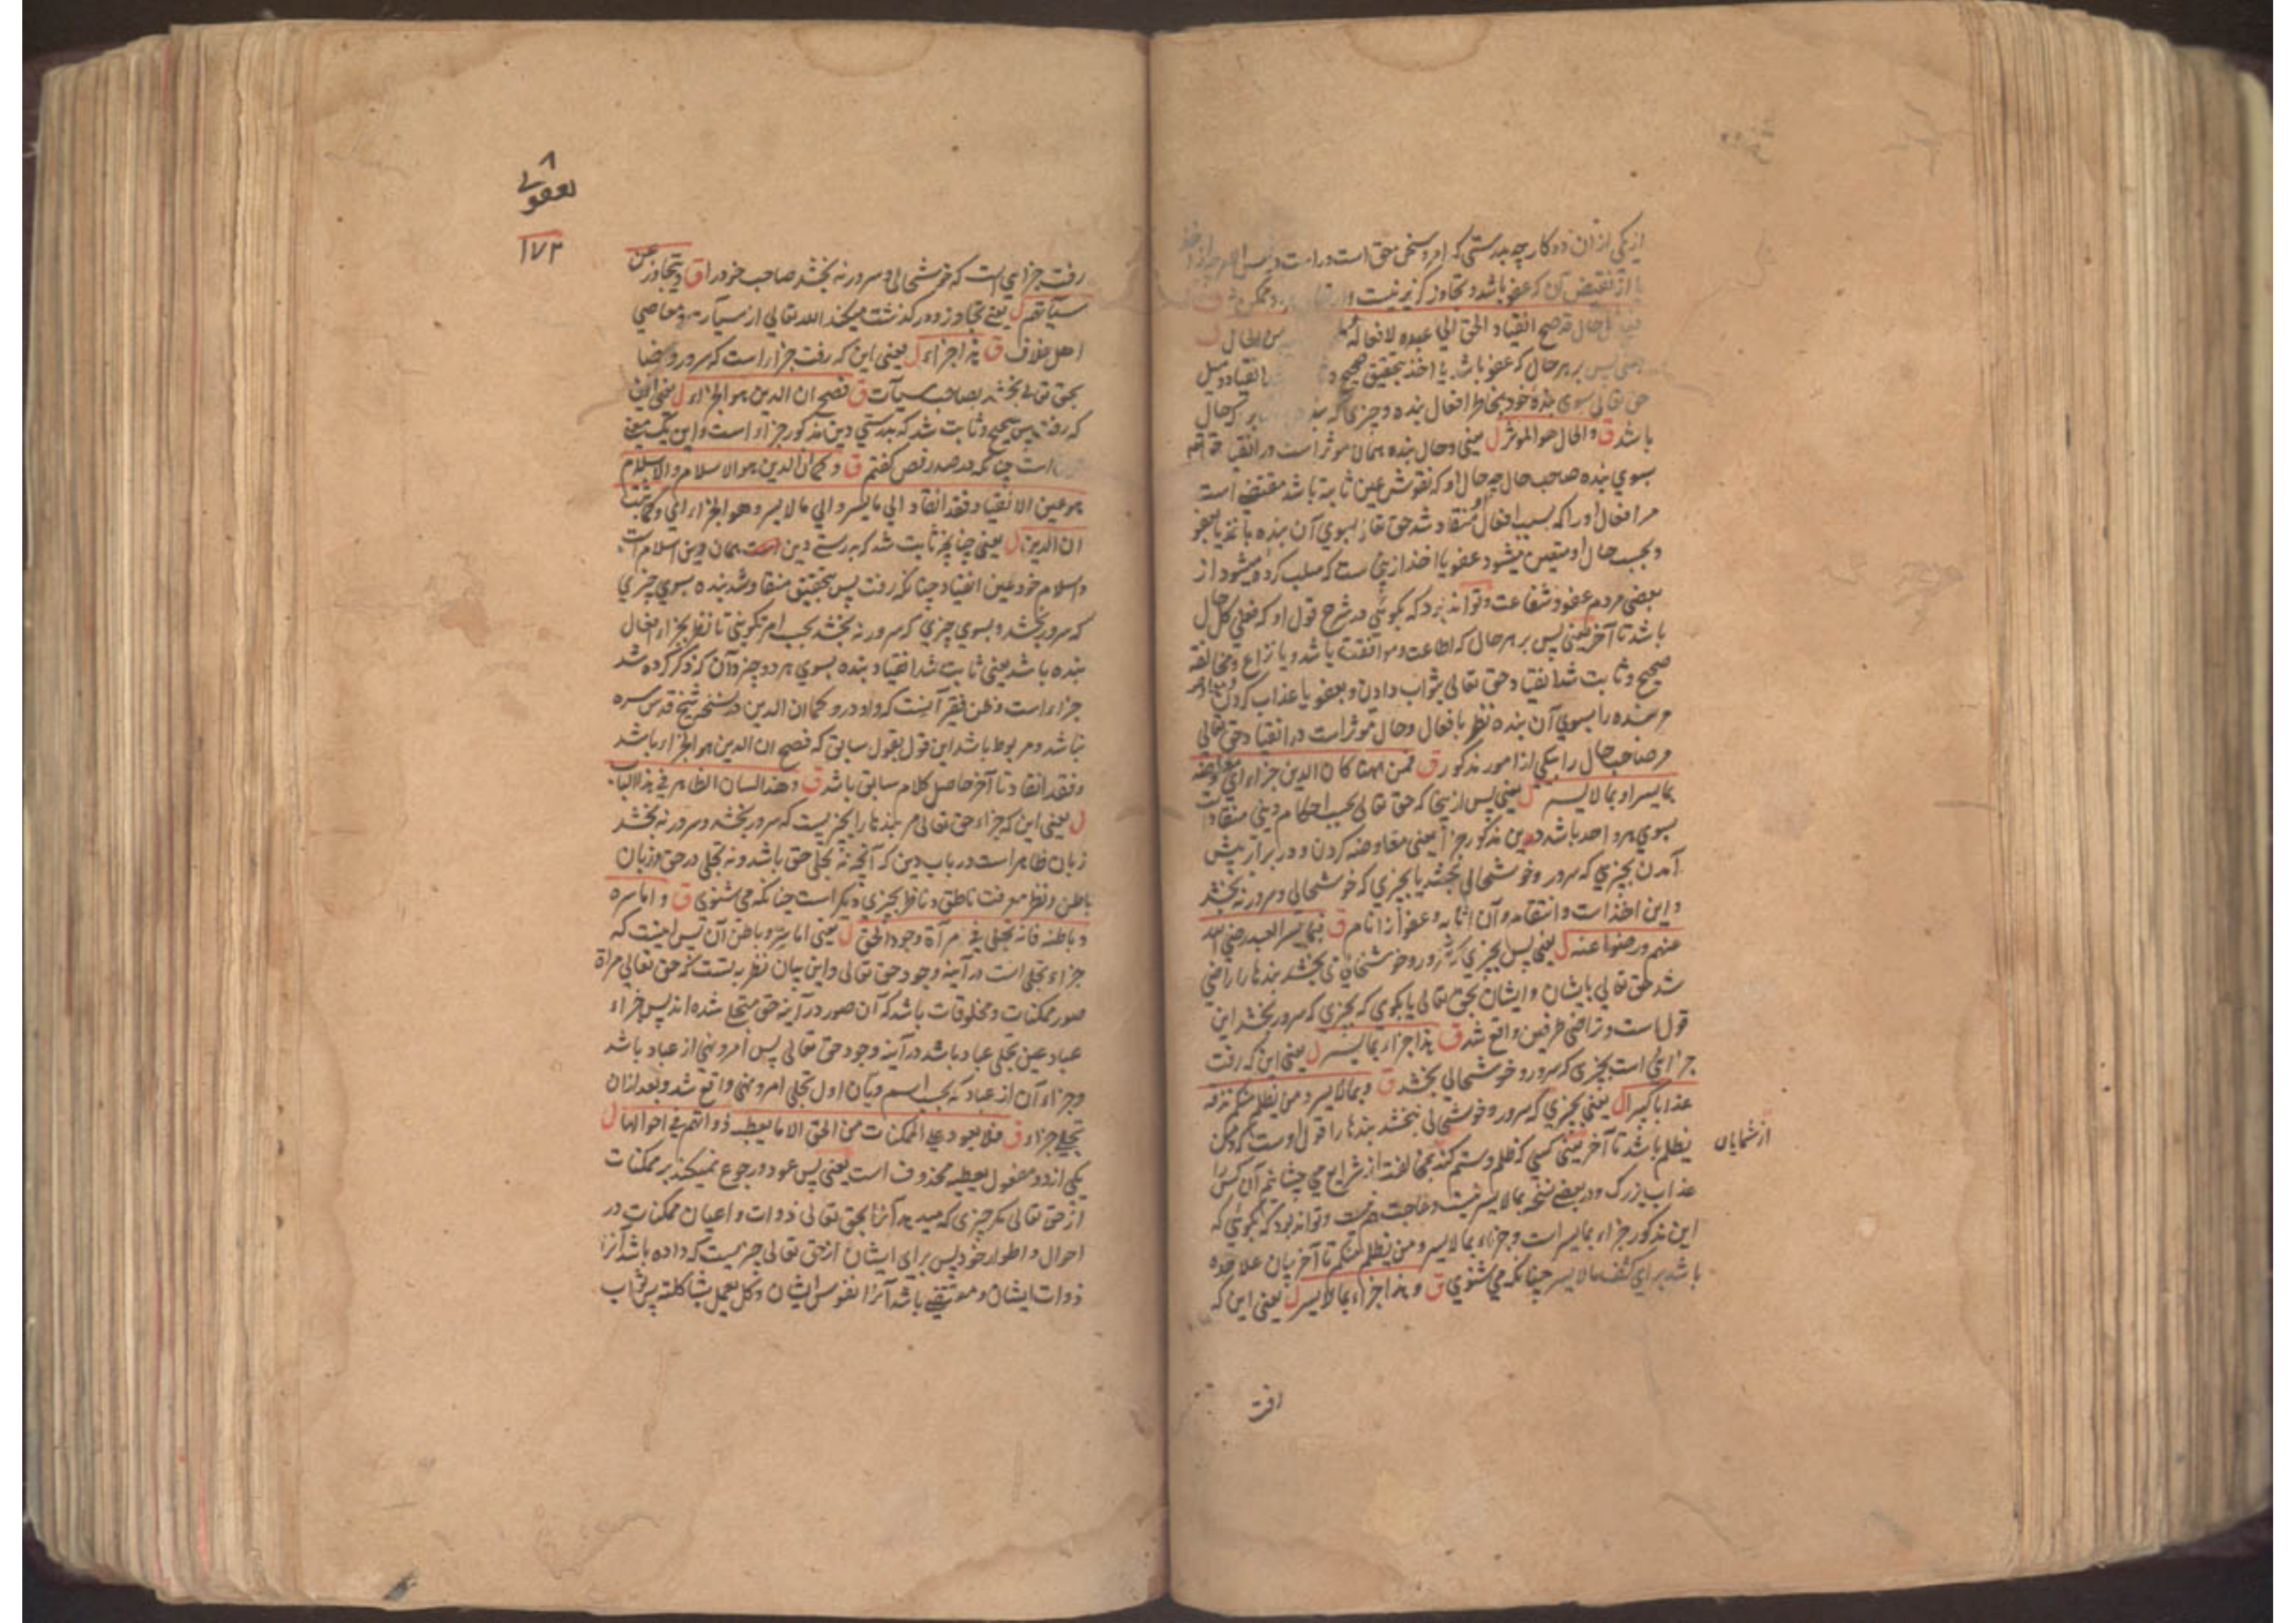 از یکی ازان دو کار چه بدرستی که امر و سخن حق است و راست
یا از نقیض آن که عفو باشد و تجاوز گزیر نیست
حال قد صح انقیاد الحق الی عبده لافعاله الحال ل
یعنی پس بر هر حال که عفو باشد یا اخذ بتحقیق صحیح انقیاد و میل
حق تعالی سوی بندهٔ خود بخاطر افعال بنده و چیزی که حال
باشد ق والحال هو الموثر ل یعنی و حال بنده همان موثر است در انقیاد
بسوی بنده صاحب حال چه حال او که نقوش عین ثابته باشد مقتضی است
مر افعال او را که بسبب افعال منقاد شد حق تعالی بسوی آن بنده باخذ یا بعفو
و بحسب حال او متعین میشود عفو یا اخذ ازینجاست که سلب کرده میشود از
بعضی مردم عفو و شفاعت و تواند بود که بگوئی در شرح قول او که فعلی کل حال
باشد تا آخر یعنی پس بر هر حال که اطاعت و موافقت باشد و یا نزاع و مخالفة
صحیح و ثابت شد انقیاد حق تعالی بثواب دادن و بعفو یا عذاب کردن
مر بنده را بسوی آن بنده نظر بافعال و حال موثر است در انقیاد حق تعالی
مر صاحب حال را بیکی از امور مذکور ق فمن ههنا کان الدین جزاء ای معاوضه
بما یسر او بما لا یسر ل یعنی پس ازینجا که حق تعالی بحسب احکام دینی منقاد است
بسوی هر واحد باشد دین مذکور جزا یعنی معاوضه کردن و در برابر پیش
آمدن بچیزی که سرور و خوشحالی بخشد یا بچیزی که خوشحالی و سرور نه بخشد
و این اخذ است و انتقام و آن اثابه و عفو از انام ق فبما یسر العبد رضی الله
عنهم و رضوا عنه ل یعنی پس بچیزی که سرور و خوشحالی می بخشد بندها را راضی
شد حق تعالی بایشان و ایشان بحق تعالی یا بگوی که بچیزی که سرور بخشد این
قول است و تراضی طرفین واقع شد ق هذا جزاء بما یسر ل یعنی این که رفت
جزائی است بچیزی که سرور و خوشحالی بخشد ق و بما لا یسر و من یظلم منکم نذقه
عذابا کبیرا ل یعنی بچیزی که سرور و خوشحالی نبخشد بندها را قول اوست که و من
یظلم باشد تا آخر یعنی کسی که ظلم و ستم کند بمخالفت از شرایع می چشانم آن کس را
از شمایان
عذاب بزرگ و در بعضی نسخه بما لا یسر نیست و حاجت هم نیست و تواند بود که بگوئی که
این مذکور جزاء بما یسر است و جزاء بما لا یسر و من یظلم منکم تا آخر بیان علاحده
باشد برای کشف ما لا یسر چنانکه می شنوی ق و هذا جزاء بما لا یسر ل یعنی این که
رفت
لعقوبی
۱۷۳
رفت جزایی است که خوشحالی و سرور نه بخشد صاحب خود را ق و یتجاوز عن
سیآتهم ل یعنی تجاوز و درگذشت میکند الله تعالی از سیآت و معاصی
اهل خلاف ق هذا جزاء ل یعنی این که رفت جزا راست که سرور و رضا
بحق تعالی بخشد بصاحب سیآت ق فصح ان الدین هو الجزاء ل یعنی این
که رفت پس صحیح و ثابت شد که بدرستی دین مذکور جزاء است و این یک معنی
است چنانکه در صدر فص گفتم ق و کما ان الدین هو الاسلام والاسلام
هو عین الانقیاد فقد انقاد الی ما یسر و الی ما لا یسر و هو الجزاء ل ای و کما ثبت
ان الدین ل یعنی چنانچه ثابت شد که بدرستی دین است همان دین اسلام است
و اسلام خود عین انقیاد چنانکه رفت پس بتحقیق منقاد شد بنده بسوی چیزی
که سرور بخشد و بسوی چیزی که سرور نه بخشد بحسب امر تکوینی تا نظر بجزاء افعال
بنده باشد یعنی ثابت شد انقیاد بنده بسوی هر دو چیز و آن که ذکر کرده شد
جزاء است و ظن فقیر آنست که واو در و کما ان الدین در نسخه شیخ قدس سره
نباشد و مربوط باشد این قول بقول سابق که فصح ان الدین هو الجزاء باشد
و فقد انقاد تا آخر حاصل کلام سابق باشد ق و هذا لسان الظاهر فی هذا الباب
ل یعنی این که جزاء حق تعالی مر بندها را بچیزیست که سرور بخشد و سرور نه بخشد
زبان ظاهر است در باب دین که آنچه نه تجلی حق باشد و نه تجلی در حق و زبان
باطن و نظر معرفت ناطق و ناظر بچیزی دیگر است چنانکه می شنوی ق و اما سره
و باطنه فانه تجلی فی مرآة وجود الحق ل یعنی اما سر و باطن آن پس اینست که
جزاء تجلی است در آینه وجود حق تعالی و این بیان نظر به نشست که حق تعالی مرآة
صور ممکنات و مخلوقات باشد که آن صور در آینه حق متجلی شده اند پس جزاء
عباد عین تجلی عباد باشد در آینه وجود حق تعالی پس امر و نهی از عباد باشد
و جزاء آن از عباد که بحسب اسم دیان اول تجلی امر و نهی واقع شد و بعد ازان
تجلی جزاء ق فلا یعود علی الممکنات من الحق الا ما یعطیه ذواتهم فی احوالها ل
یکی از دو مفعول یعطیه محذوف است یعنی پس عود و رجوع نمیکند بر ممکنات
از حق تعالی مگر چیزی که میدهد آنرا بحق تعالی ذوات و اعیان ممکنات در
احوال و اطوار خود پس برای ایشان از حق تعالی چیزیست که داده باشد آنرا
ذوات ایشان و مقتضی باشد آنرا نفوس ایشان و کل یعمل بشاکلته پس ثواب